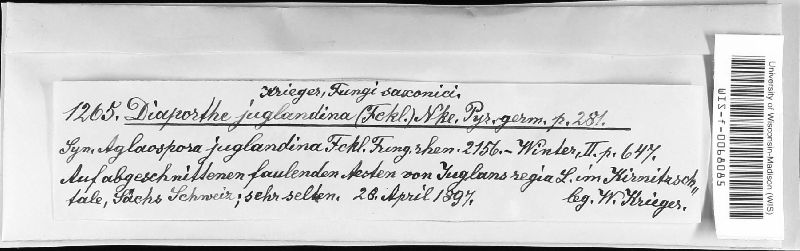 Krieger, Fungi saxonici.
1265. Diaporthe juglandina (Fckl.) Nke. Pyr. germ. p. 281.
Syn. Aglaospora juglandina Fckl. Fung. rhen. 2156. – Winter, II. p. 647.
Auf abgeschnittenen faulenden Aesten von Juglans regia L. im Kirnitzsch„
tale, Sächs Schweiz; sehr selten. 26. April 1897. leg. W. Krieger.
University of Wisconsin-Madison (WIS)
WIS-f-0068085